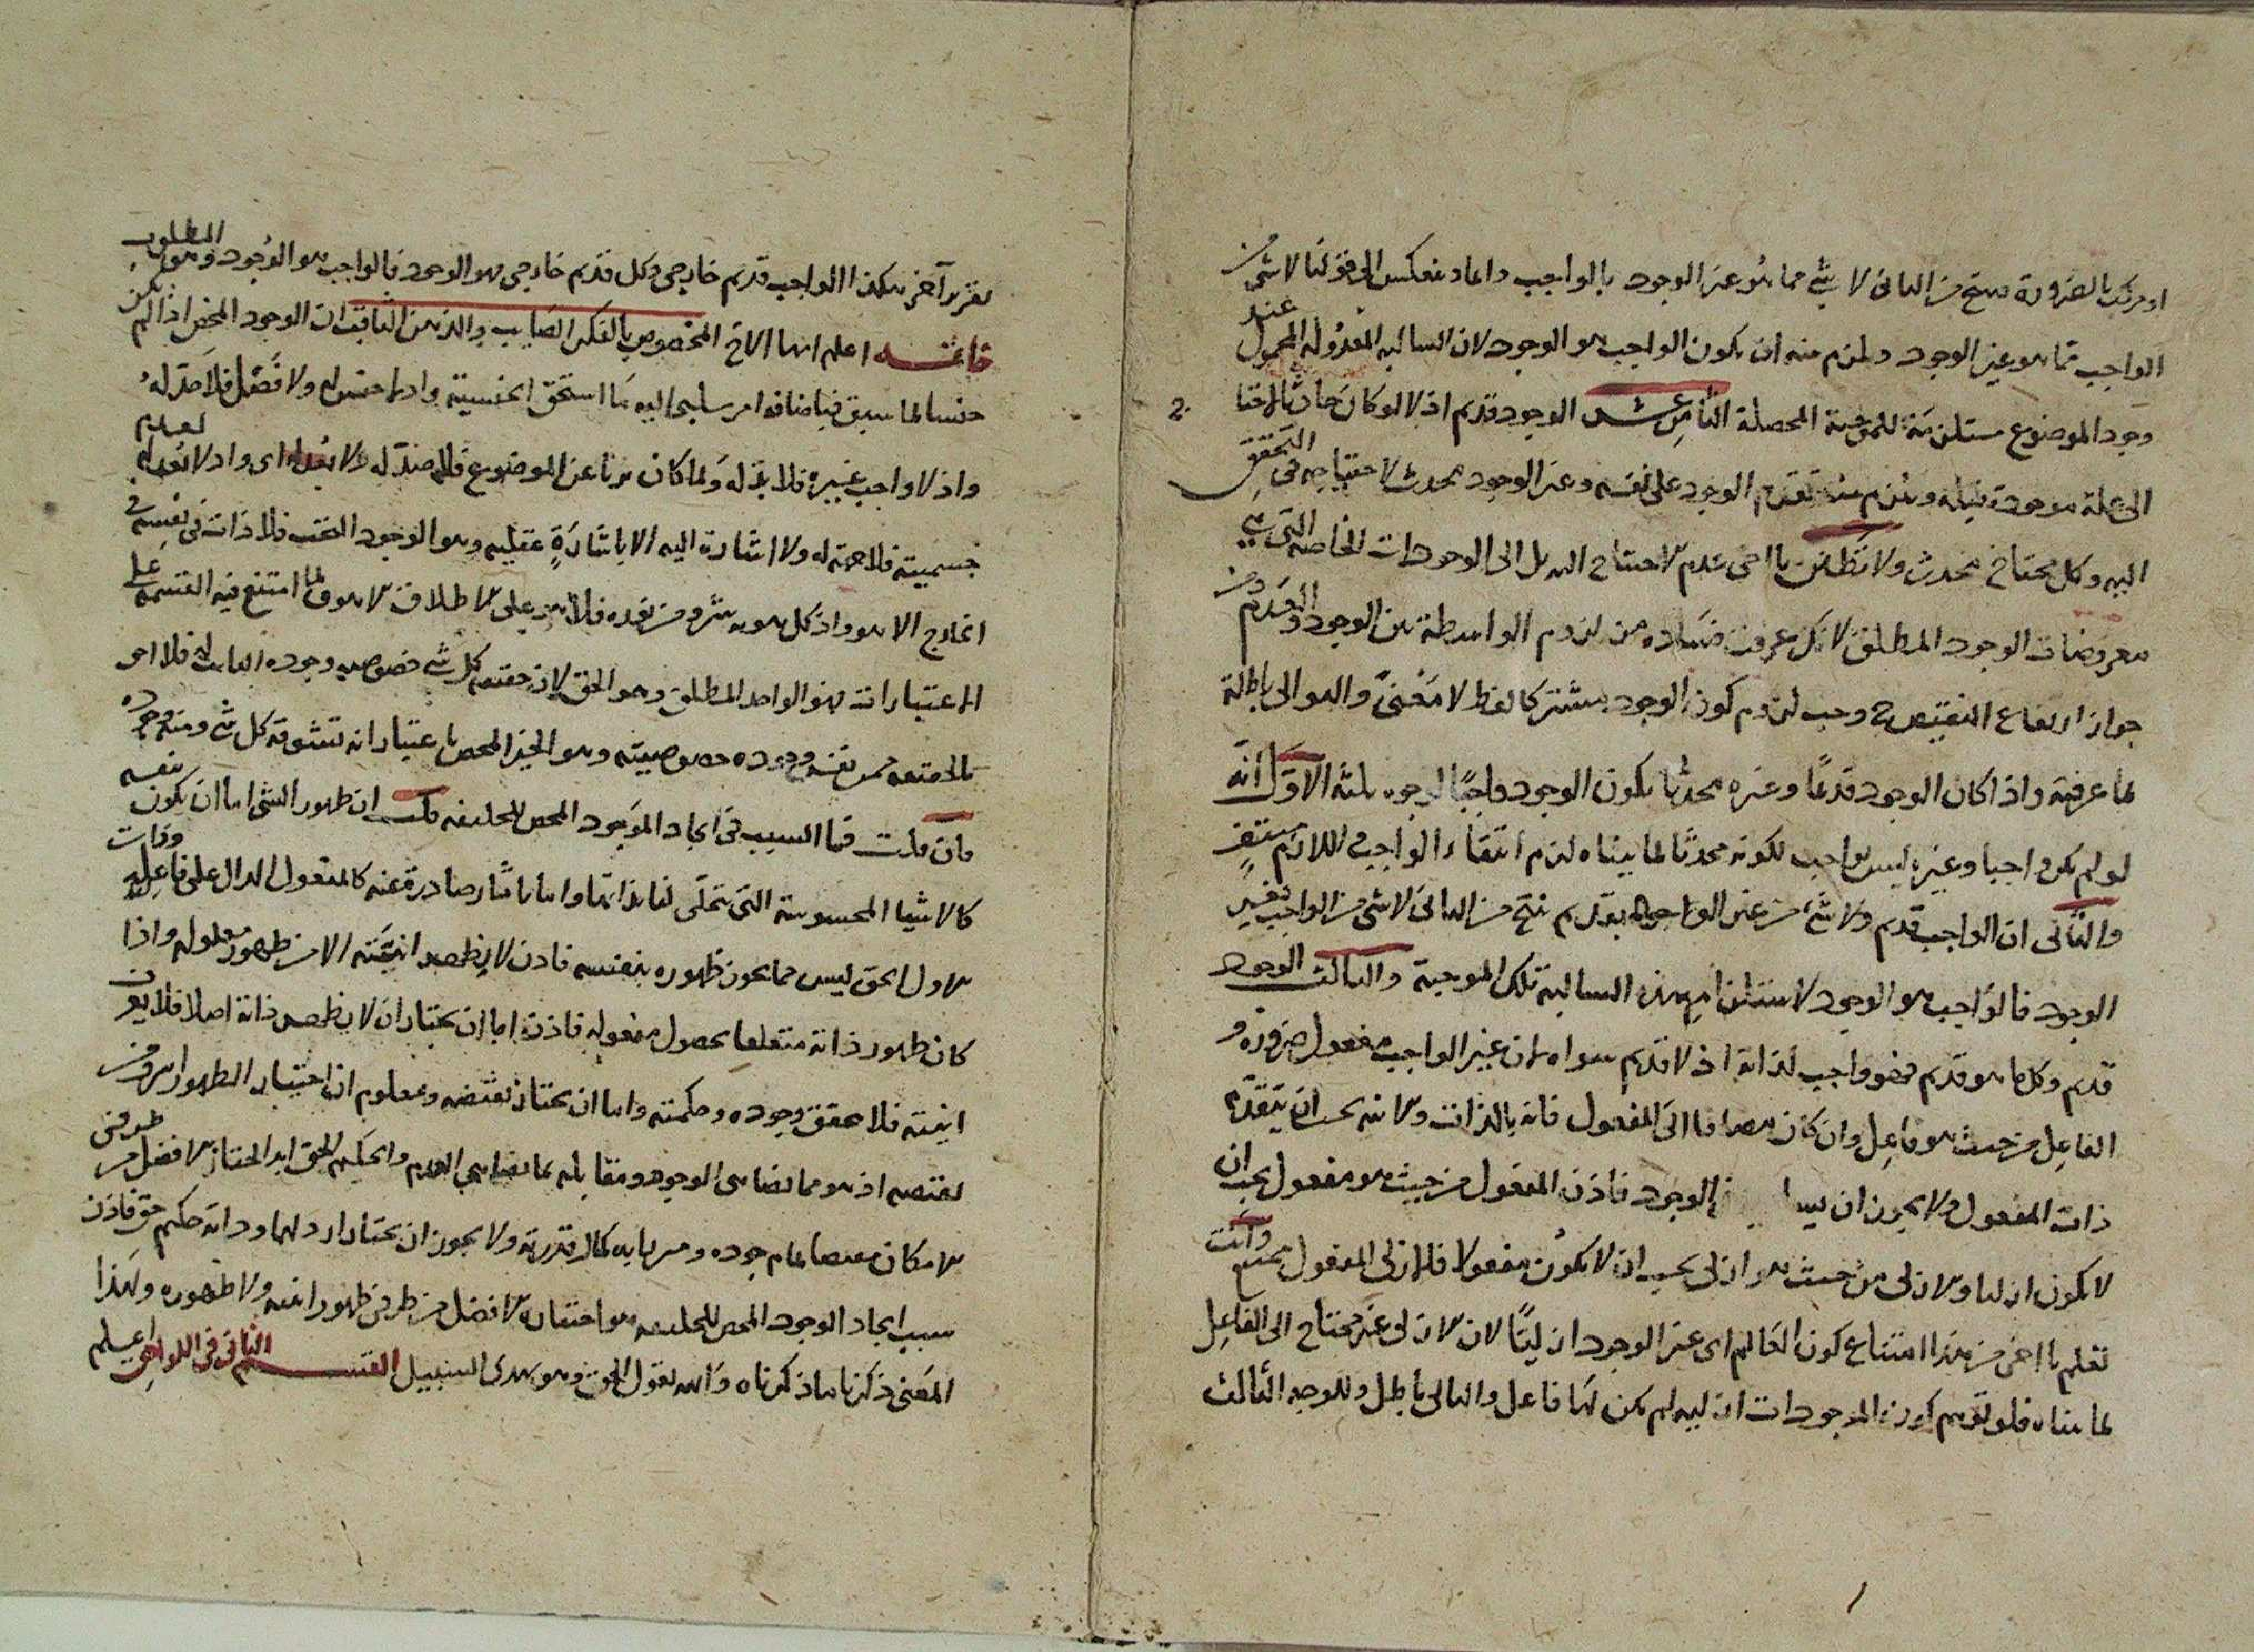 او مركب بالضرورة ينتج من الثانى لا شئ مما هو غير الوجود بالواجب دائما وينعكس الى قولنا لا شئ من
الواجب بما هو غير الوجود ويلزم منه ان يكون الواجب هو الوجود لان السالبه المعدوله المحمول عند
وجود الموضوع مستلزمة للموجبة المحصلة الثامن عشر الوجود قديم اذ لو كان حادثا لاحتاج
الى علة موجودة قبله ويلزم منه تقدم الوجود على نفسه وغير الوجود محدث لاحتياجه فى التحقق
اليه وكل محتاج محدث ولا تظنن يا اخى عدم الاحتياج اليه بل الى الوجودات الخاصه التى هى
معروضات الوجود المطلق لانك عرفت فساده من لزوم الواسطة بين الوجود والعدم ومن
جواز ارتفاع النقيضين وحب لزوم كون الوجود مشتركا لفظا لا معنى والتوالى باطلة
لما عرفته واذا كان الوجود قديما وغيره محدثا يكون الوجود واجبا لوجوه ثلثه الاول انه
لو لم يكن واجبا وغيره ليس بواجب لكونه محدثا لما بيناه لزم انتفاء الواجب واللازم منتف
والثانى ان الواجب قديم ولا شئ من غير الوجود بقديم ينتج من الثانى لا شئ من الواجب بغير
الوجود فالواجب هو الوجود لاستلزام هذه السالبه تلك الموجبة والثالث الوجود
قديم وكل ما هو قديم فهو واجب لذاته اذ لا قديم سواه لان غير الواجب مفعول ضرورة و
الفاعل من حيث هو فاعل وان كان مضافا الى المفعول فانه بالذات والانيه يجب ان يتقدم
ذات المفعول ولا يجوز ان الوجود فاذن المفعول من حيث هو مفعول يجب ان
لا يكون ازليا والازلى من حيث هو ازلى يجب ان لا يكون مفعولا فلا ازلى المفعول وانت
تعلم يا اخى من هذا امتناع كون العالم اى غير الوجود ازليا لان الازلى غير محتاج الى الفاعل
لما بيناه فلو توهم كون الموجودات ازليه لم يكن لها فاعل والتالى باطل وللوجه الثالث
تقرير آخر هكذا الواجب قديم خارجى وكل قديم خارجى هو الوجود فالواجب هو الوجود وهو المطلوب
خاتمـــه اعلم ايها الاخ المخصوص بالفكر الصايب والذهن الثاقب ان الوجود المحض اذا لم يكن
جنسا لما سبق فباضافه امر سلبى اليه ما استحق الجنسية واذ لا جنس له ولا فصل فلا حد له
واذ لا واجب غيره فلا ند له ولما كان بريا عن الموضوع فلا ضد له ولا بعد له اى واذ لا بعد له لعدم
جسميته فلا جهة له ولا اشارة اليه الا باشارة عقليه وهو الوجود البحت فلا ذات فى نفسه فى
الخارج الا هو واذ كل هويه من نوره فلا هو على الاطلاق الا هو لما امتنع فيه القسمه على
الاعتبارات فهو الواحد المطلق وهو الحق لان حقيقه كل شئ خصوصيه وجوده الثابت له فلا احق
بالحقيقه ممن نفس وجوده خصوصيته وهو الخير المحض باعتبار انه تتشوقه كل شئ ومنه وجوده
فان قلت فما السبب فى ايجاد الوجود المحض للخليقه قلت ان ظهور الشئ اما ان يكون بنفسه
كالاشيا المحسوسة التى تتجلى لنا بذاتها واما باثار صادرة عنه كالمفعول الدال على فاعله وذات
الاول الحق ليس مما يجوز ظهوره بنفسه فاذن لا يظهر انيته الا من ظهور مفعوله واذا
كان ظهور ذاته متعلقا بحصول مفعوله فاذن اما ان يختار ان لا يظهر ذاته اصلا فلا يعرف
انيته فلا يحقق وجوده وحكمته واما ان يختار نقيضه ومعلوم ان اختيار الظهور اشرف من
نقيضه اذ هو مما يضاهى الوجود ومقابله مما يضاهى العدم والحكيم الحق ابدا يختار الافضل من طرفى
الامكان لتمام جوده وسريانه كمال قدرته ولا يجوز ان يختار ارذلهما وذاته حكيم حق فاذن
سبب ايجاد الوجود المحض للخليقه هو اختياره الافضل من طرفى ظهور انيته ولا ظهوره ولهذا
المعنى ذكرنا ما ذكرناه والله يقول الحق وهو يهدى السبيل القســـم الثانى فى اللواحق اعلم